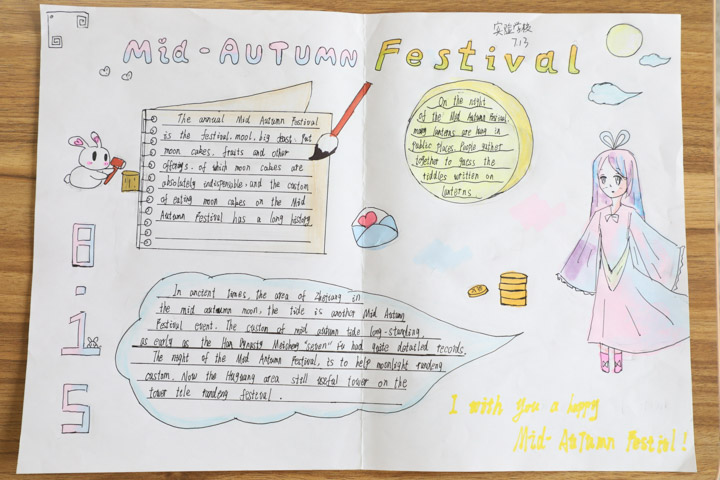 Mid-AUTUMN Festival
实验学校
7.13
The annual Mid Autumn Festival
is the festival, mool, big feast. Put
moon cakes, fruits and other
offerings. of which moon cakes are
absolutely indispensible, and the custom
of eating moon cakes on the Mid
Autumn Festival has a long history
On the night
of the Mid Autumn Festival.
many lanterns are hung in
public places. People gather
together to guess the
riddles written on
lanterns.
8.15
In ancient times, the area of Zhejiang in
the mid autumn moon, the tide is another Mid Autumn
Festival event. The custom of mid autumn tide long-standing,
as early as the Han Dynasty "seven" Fu had quite detailed records.
The night of the Mid Autumn Festival, is to help moonlight randeng
custom. Now the Huguang area still useful tower on the
tower tile randeng festival.
I with you a happy
Mid-AuTumn Festival!